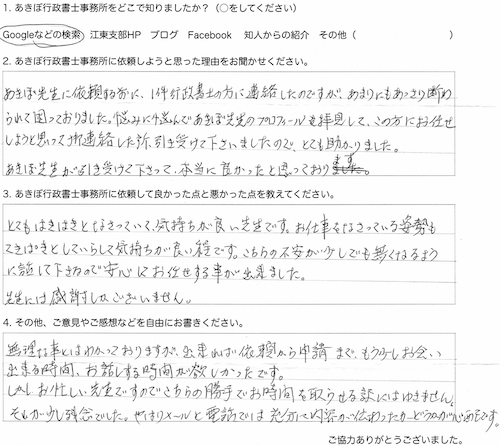 1. あきぼ行政書士事務所をどこで知りましたか？（○をしてください）
Googleなどの検索 江東支部HP ブログ Facebook 知人からの紹介 その他（ ）
2. あきぼ行政書士事務所に依頼しようと思った理由をお聞かせください。
あきぼ先生に依頼する前に、1件行政書士の方に連絡したのですが、あまりにもあっさり断わ
られて困っておりました。悩みに悩んであきぼ先生のプロフィールを拝見して、この方にお任せ
しようと思って連絡した所、引き受けて下さいましたので、とても助かりました。
あきぼ先生が引き受けて下さって、本当に良かったと思っております。
3. あきぼ行政書士事務所に依頼して良かった点と悪かった点を教えてください。
とてもはきはきとなさっていて、気持ちが良い先生です。お仕事をなさっている姿勢も
てきぱきとしていらして気持ちが良い程です。こちらの不安が少しでも無くなるよう
に話して下さるので安心してお任せする事が出来ました。
先生には感謝しかございません。
4. その他、ご意見やご感想などを自由にお書きください。
無理な事とはわかっておりますが、出来れば依頼から申請まで、もう少しお会い
出来る時間、お話しする時間が欲しかったです。
しかしお忙しい先生ですのでこちらの勝手でお時間を取らせる訳にはゆきません。
そこが少し残念でした。やはりメールと電話では充分に内容が伝わったかどうかが心配です。
ご協力ありがとうございました。